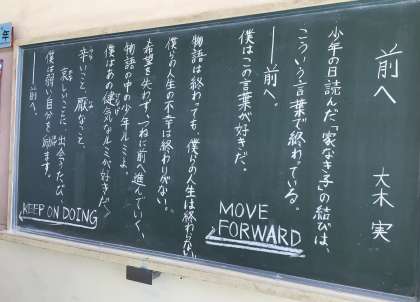 前へ
大木 実
少年の日読んだ「家なき子」の結びは、
こういう言葉で終わっている。
――前へ。
僕はこの言葉が好きだ。
物語は終わっても、僕らの人生は終わらない。
僕らの人生の不幸は終わりがない。
希望を失わず、つねに前へ進んでいく、
物語の中の少年ルミよ、
僕はあの健気なルミが好きだ。
辛いこと、厭なこと、
哀しいことに、出会うたび
僕は弱い自分を励ます。
――前へ。
MOVE
FORWARD
KEEP ON DOING